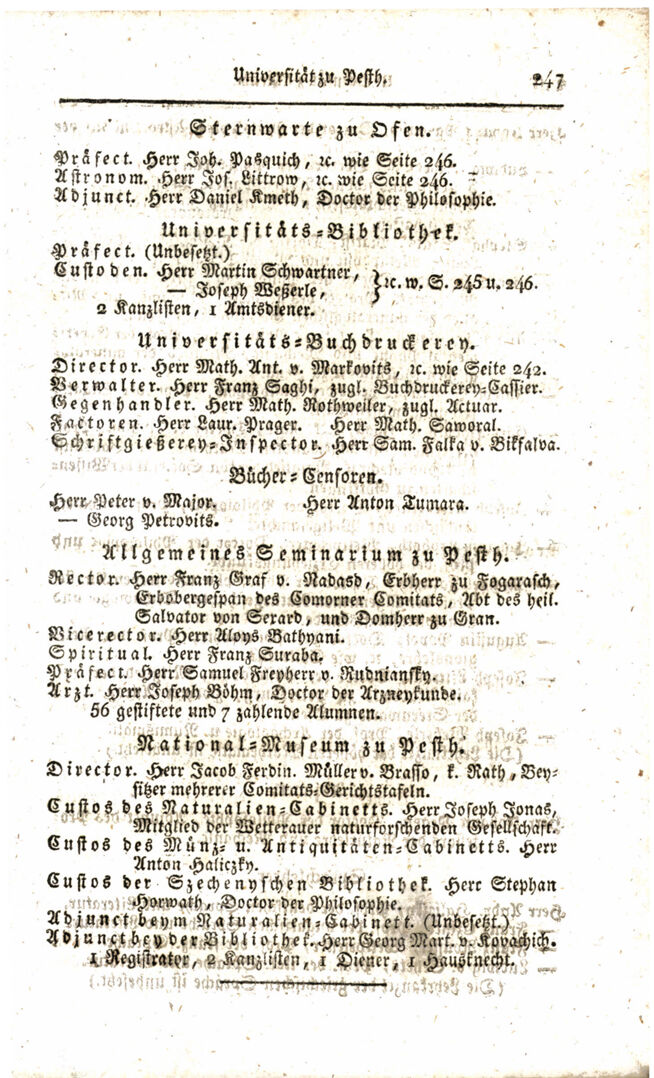 Universität zu Pesth. 247
Sternwarte zu Ofen.
Präfect. Herr Joh. Pasquich, ꝛc. wie Seite 246.
Astronom. Herr Jos. Littrow, ꝛc. wie Seite 246.
Adjunct. Herr Daniel Kmeth, Doctor der Philosophie.
Universitäts-Bibliothek.
Präfect. (Unbesetzt.)
Custoden. Herr Martin Schwartner,
— Joseph Weßerle, } ꝛc. w. S. 245 u. 246.
2 Kanzlisten, 1 Amtsdiener.
Universitäts-Buchdruckerey.
Director. Herr Math. Ant. v. Markovits, ꝛc. wie Seite 242.
Verwalter. Herr Franz Saghi, zugl. Buchdruckerey-Cassier.
Gegenhandler. Herr Math. Rothweiler, zugl. Actuar.
Factoren. Herr Laur. Prager. Herr Math. Saworal.
Schriftgießerey-Inspector. Herr Sam. Falka v. Bikfalva.
Bücher-Censoren.
Herr Peter v. Major. Herr Anton Tumara.
— Georg Petrovits.
Allgemeines Seminarium zu Pesth.
Rector. Herr Franz Graf v. Nadasd, Erbherr zu Fogarasch,
Erbobergespan des Comorner Comitats, Abt des heil.
Salvator von Serard, und Domherr zu Gran.
Vicerector. Herr Aloys Bathyani.
Spiritual. Herr Franz Suraba.
Präfect. Herr Samuel Freyherr v. Rudniansky.
Arzt. Herr Joseph Böhm, Doctor der Arzneykunde.
56 gestiftete und 7 zahlende Alumnen.
National-Museum zu Pesth.
Director. Herr Jacob Ferdin. Müller v. Brasso, k. Rath, Bey-
sitzer mehrerer Comitats-Gerichtstafeln.
Custos des Naturalien-Cabinetts. Herr Joseph Jonas,
Mitglied der Wetterauer naturforschenden Gesellschaft.
Custos des Münz- u. Antiquitäten-Cabinetts. Herr
Anton Haliczky.
Custos der Szechenyschen Bibliothek. Herr Stephan
Horwath, Doctor der Philosophie.
Adjunct beym Naturalien-Cabinett. (Unbesetzt.)
Adjunct bey der Bibliothek. Herr Georg Mart. v. Kovachich.
1 Registrator, 2 Kanzlisten, 1 Diener, 1 Hausknecht.